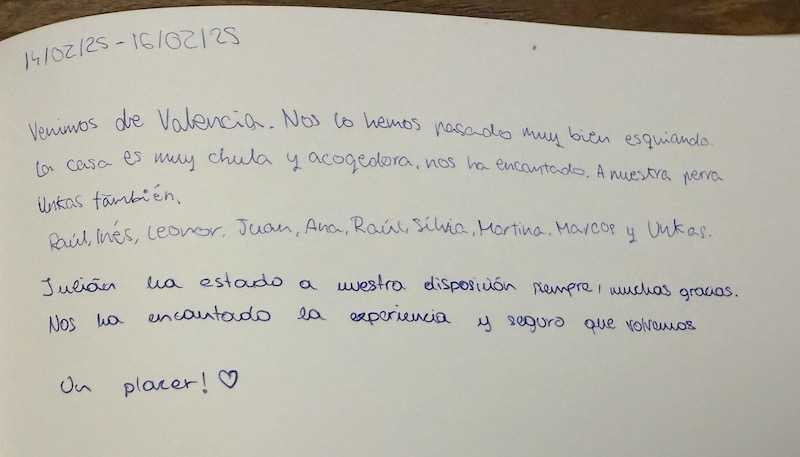 14/02/25 - 16/02/25
Venimos de Valencia. Nos lo hemos pasado muy bien esquiando.
La casa es muy chula y acogedora, nos ha encantado. A nuestra perra
Unkas también.
Raúl, Inés, Leonor, Juan, Ana, Raúl, Silvia, Martina, Marcos y Unkas.
Julián ha estado a nuestra disposición siempre, muchas gracias.
Nos ha encantado la experiencia y seguro que volvemos
Un placer! ♡